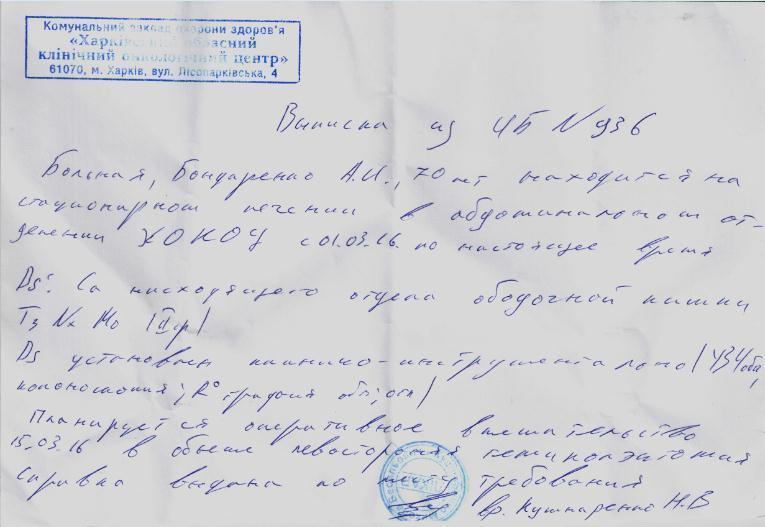 Комунальний заклад охорони здоров'я
«Харківський обласний
клінічний онкологічний центр»
61070, м. Харків, вул. Лісопарківська, 4
Выписка из ИБ N 936
Больная, Бондаренко А.И., 70 лет находится на
стационарном лечении в абдоминальном от-
делении ХОКОЦ с 01.03.16. по настоящее время
Ds: Ca нисходящего отдела ободочной кишки
T3 Nx M0 (II гр)
Ds установлен клинико-инструментально (УЗИ обп,
колоноскопия, R°графия
Планируется оперативное вмешательство
15.03.16 в объеме левосторонняя гемиколэктомия
Справка выдана по месту требования
вр. Кушнаренко Н.В